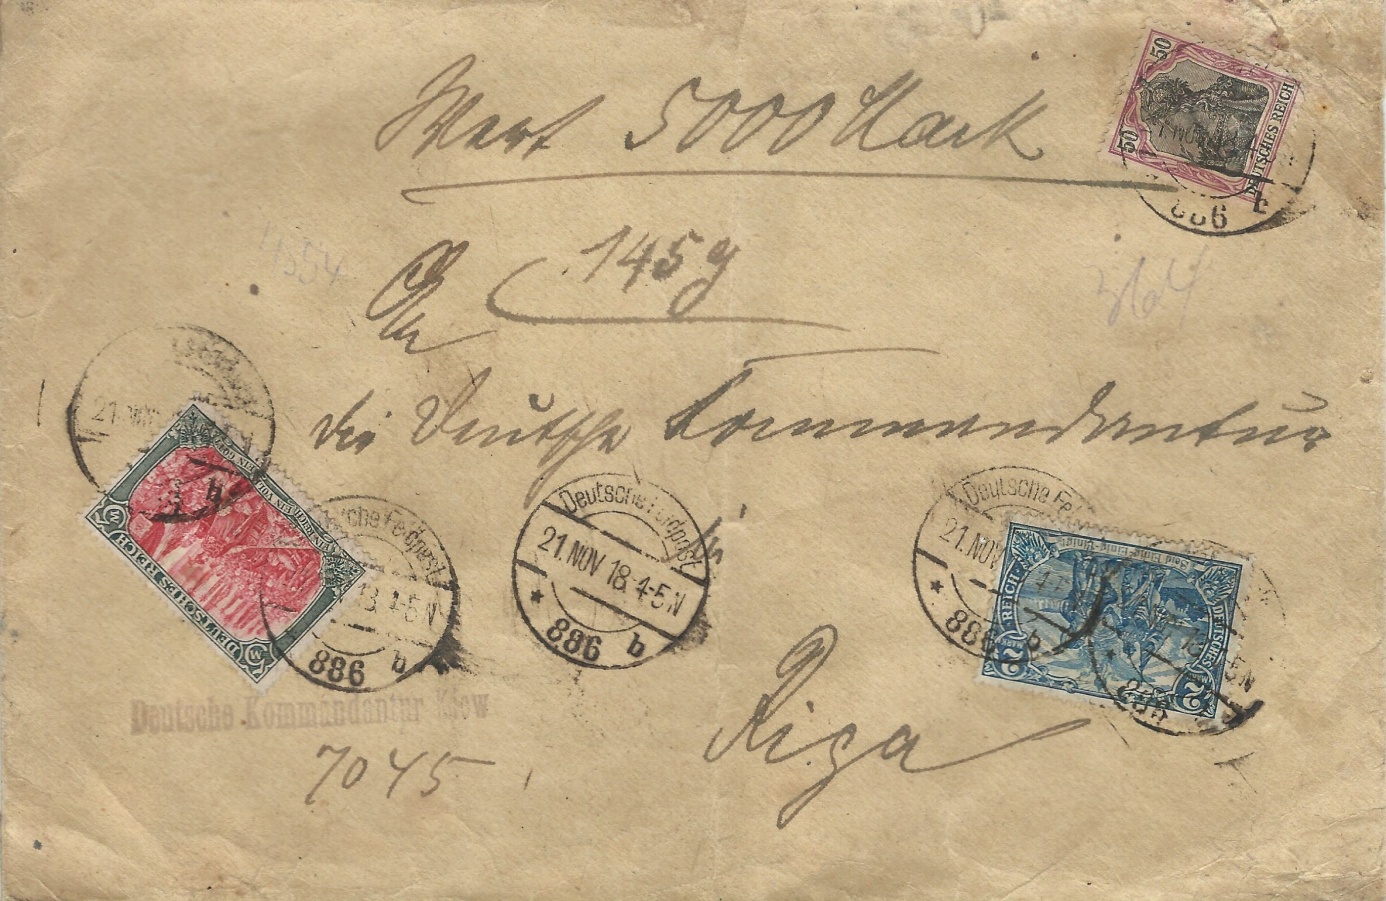 50
50
DEUTSCHES REICH
886 b
Wert 5000 Mark
145 g
An
die Deutsche Kommandantur
in
Riga
21. NOV
DEUTSCHES REICH
5 M
5 M
Deutsche Feldpost
4-5 N
886 b
Deutsche Feldpost
21. NOV 18. 4-5 N
* 886 b
Deutsche
21. NOV
* 886 b
DEUTSCHES REICH
Seid Einig Einig Einig
2
2
5 N
Deutsche Kommandantur Kiew
7045